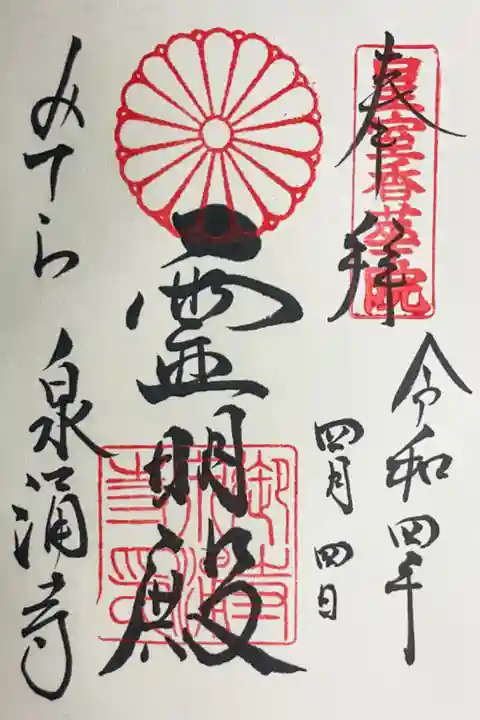 奉拝
皇宮香華院
令和四年
四月四日
霊明殿
御寺泉涌寺印
みてら 泉涌寺